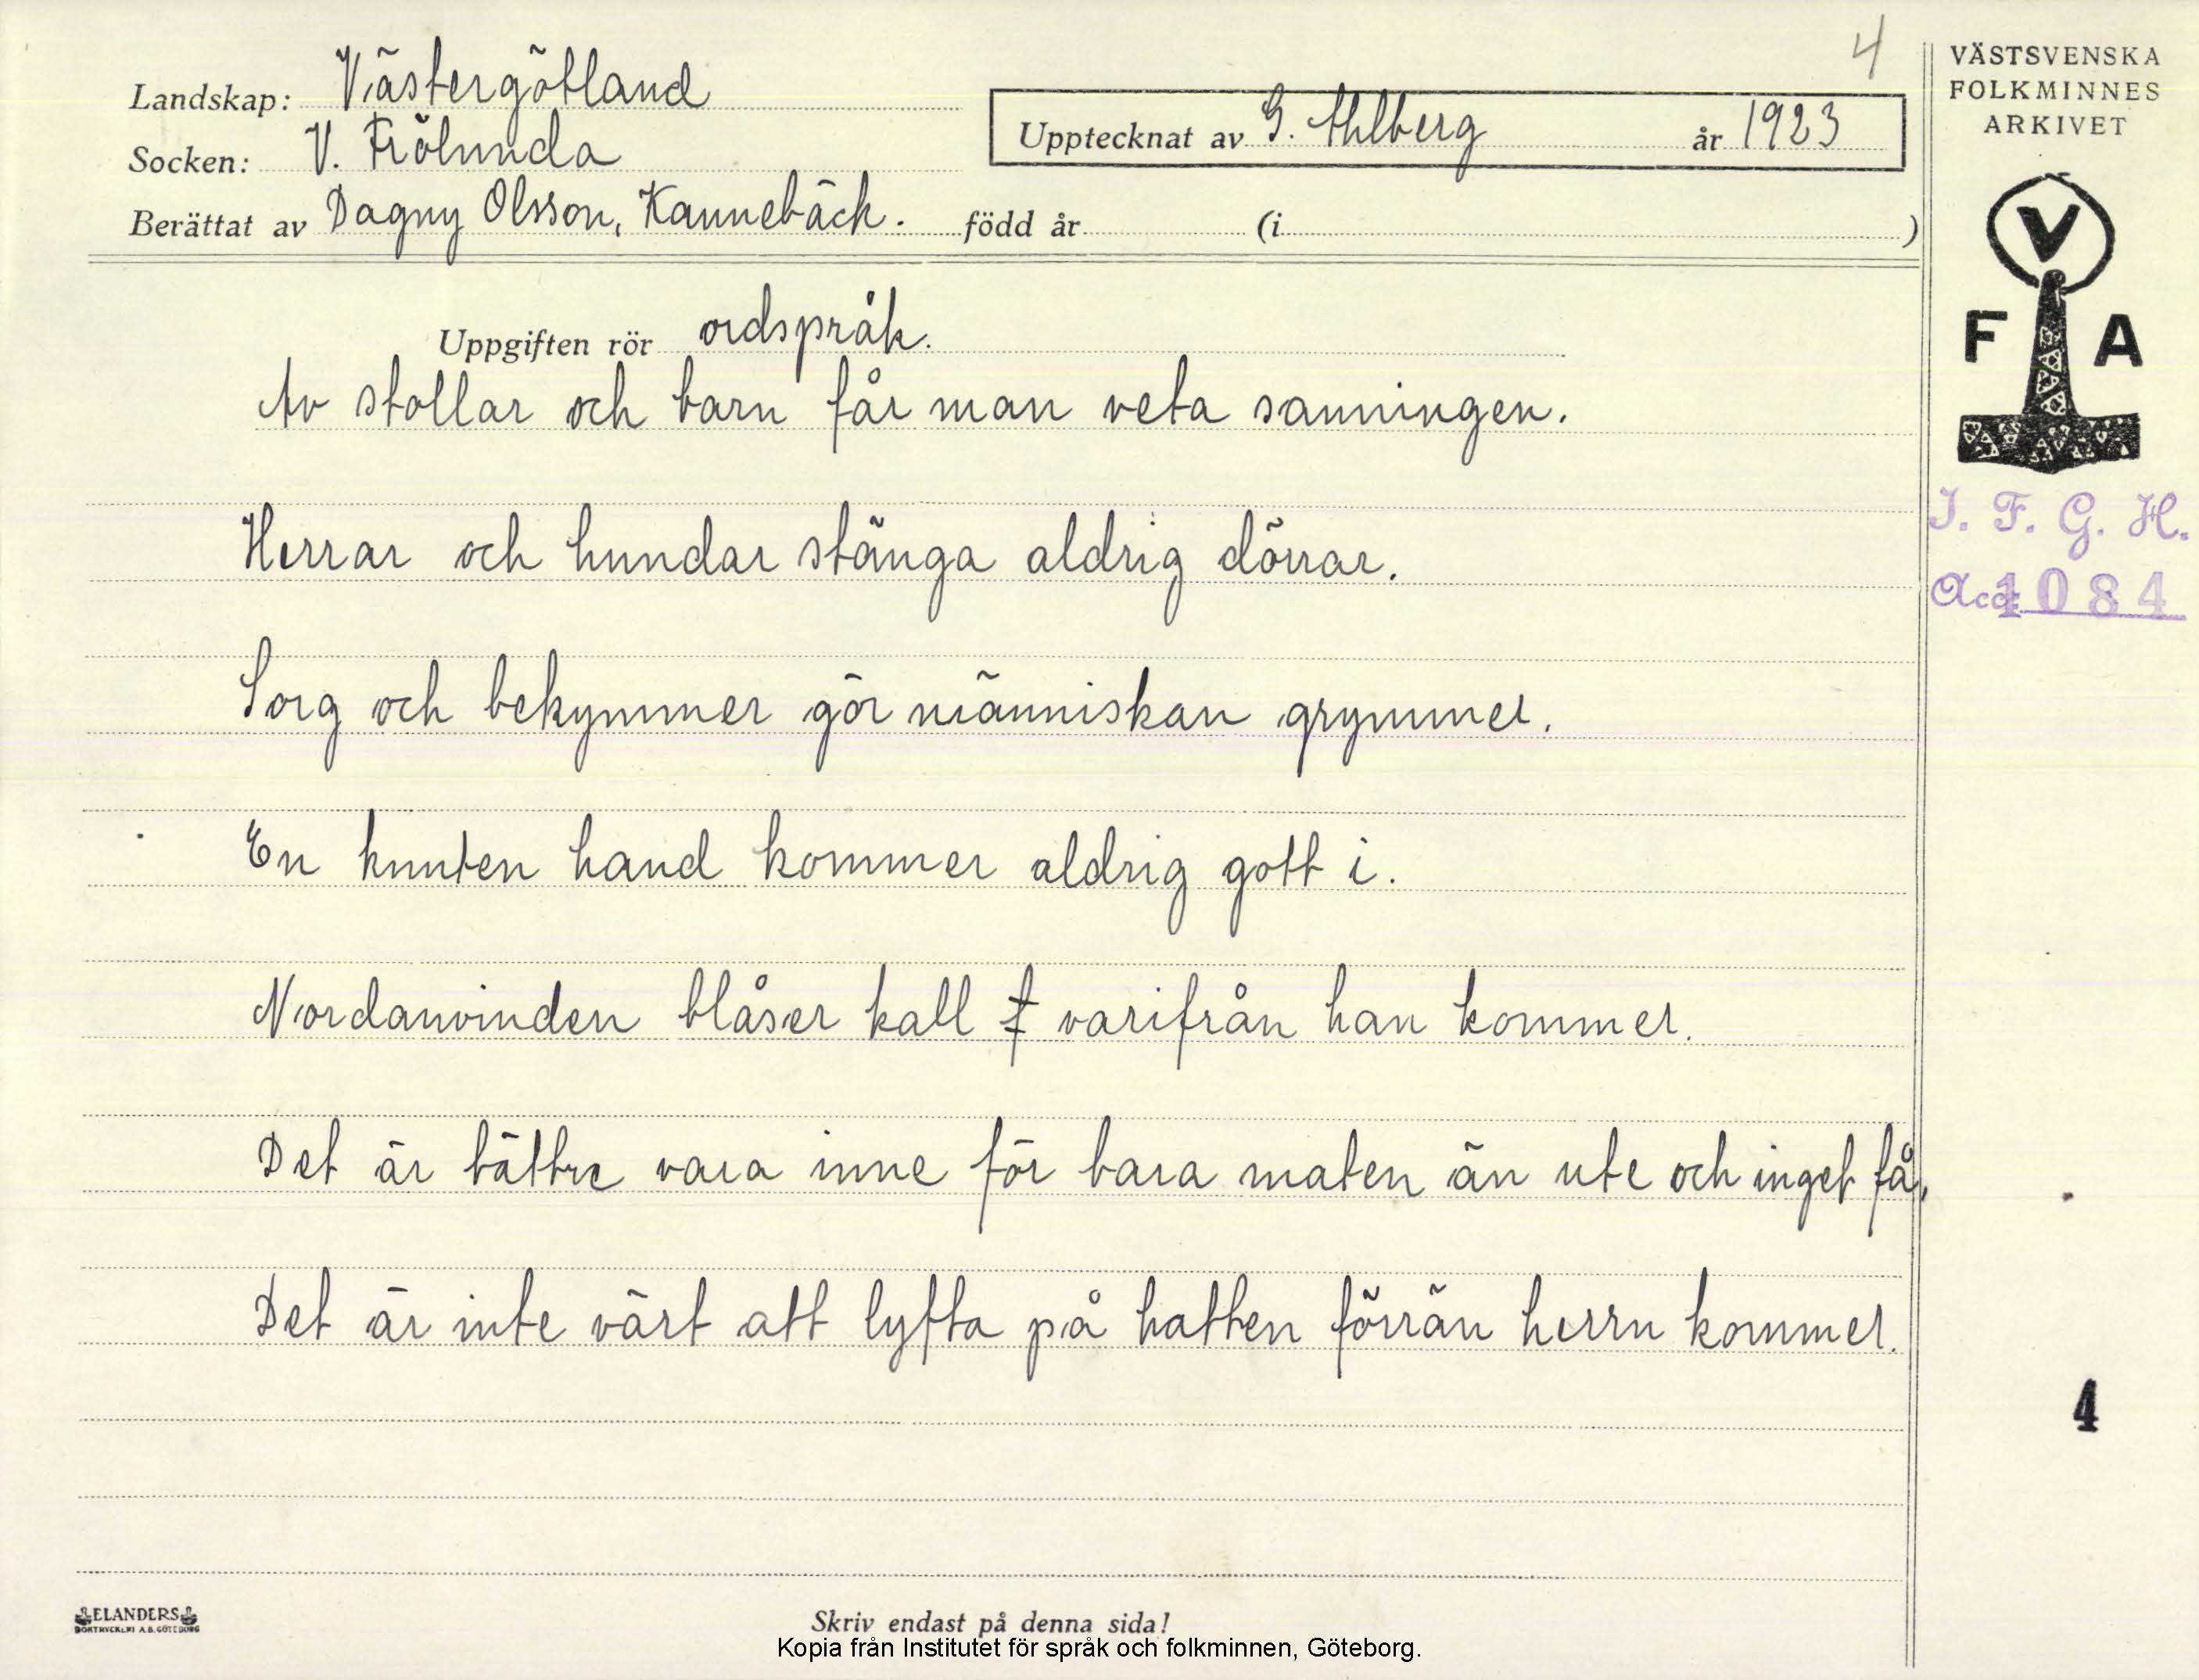 4
VÄSTSVENSKA
FOLKMINNES
ARKIVET
Landskap: Västergötland
Upptecknat av G. Ahlberg år 1923
Socken: V. Frölunda
Berättat av Dagny Olsson, Kannebäck. född år (i )
V
F A
Uppgiften rör ordspråk.
Av stollar och barn får man veta sanningen.
I. F. G. H.
Acc. 1084
Herrar och hundar stänga aldrig dörrar.
Sorg och bekymmer gör människan grymmer.
En knuten hand kommer aldrig gott i.
Nordanvinden blåser kall varifrån han kommer.
Det är bättre vara inne för bara maten än ute och inget få.
Det är inte värt att lyfta på hatten förrän herrn kommer.
4
ELANDERS
BOKTRYCKERI A.B. GÖTEBORG
Skriv endast på denna sida!
Kopia från Institutet för språk och folkminnen, Göteborg.